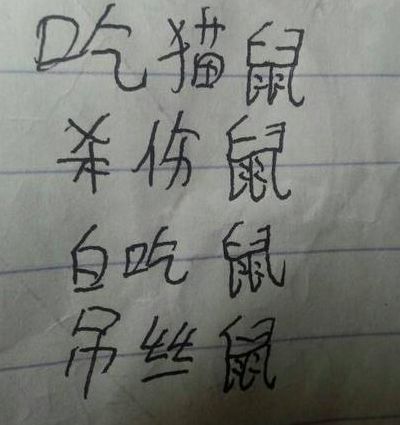 吃猫鼠
杀伤鼠
白吃鼠
吊丝鼠